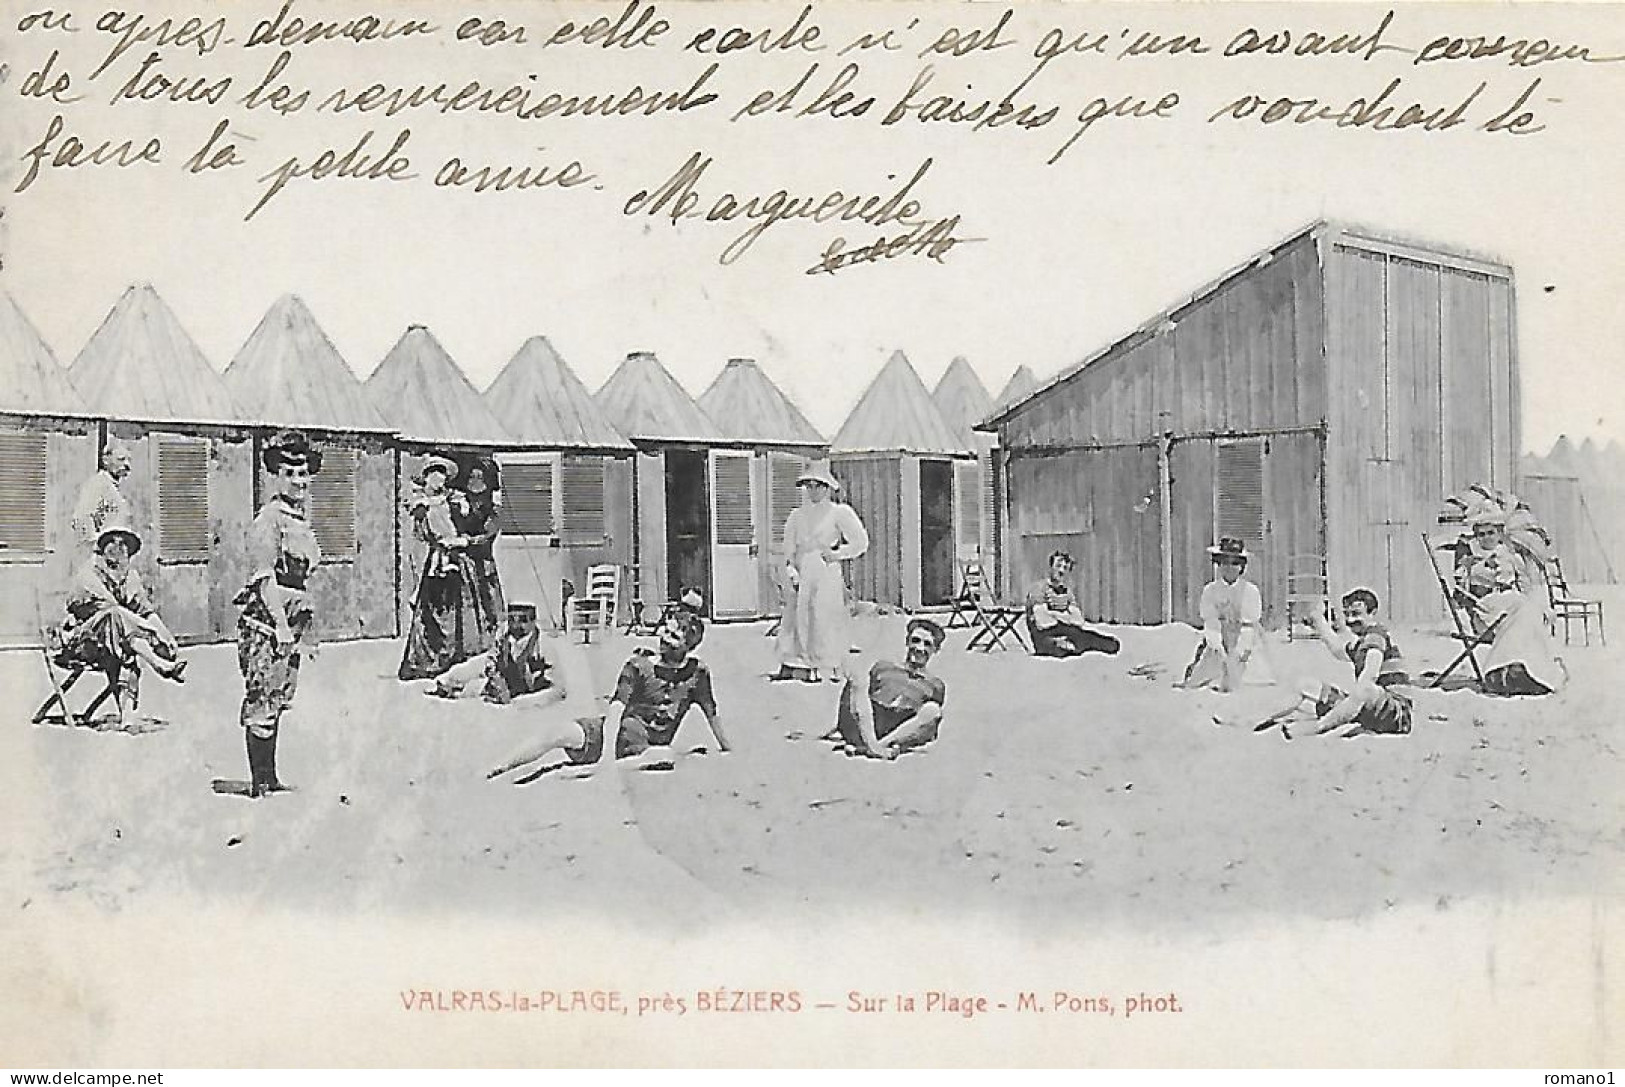 ou après-demain car celle carte n'est qu'un avant coureur
de tous les remerciement et les baisers que voudrait te
faire ta petite amie. Marguerite
VALRAS-la-PLAGE, près BÉZIERS — Sur la Plage - M. Pons, phot.
romano1